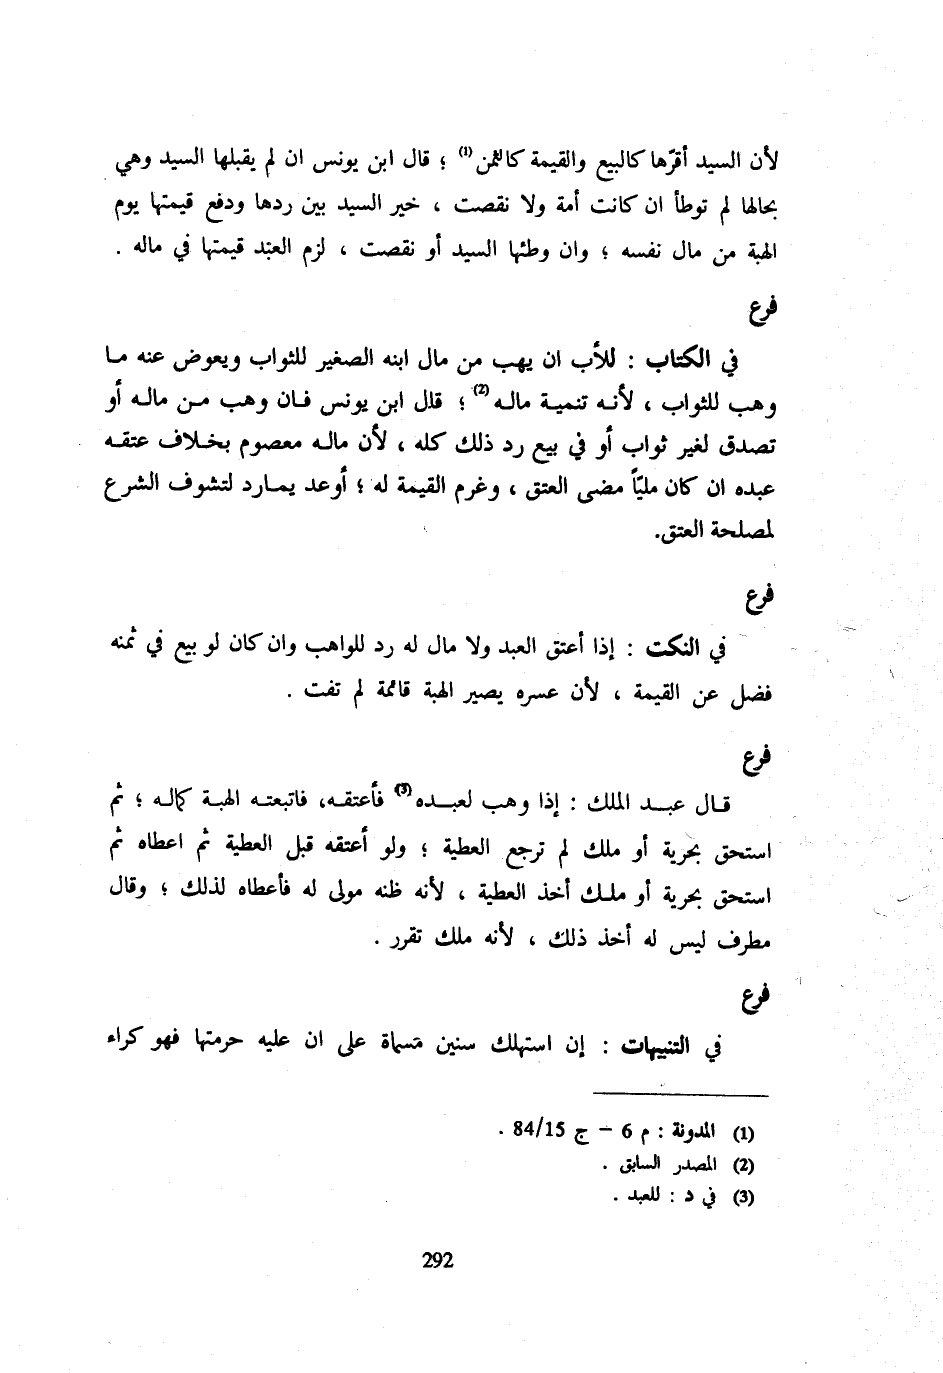 لأن السيد أقرّها كالبيع والقيمة كالثمن(1) ؛ قال ابن يونس ان لم يقبلها السيد وهي
بحالها لم توطأ ان كانت أمة ولا نقصت ، خير السيد بين ردها ودفع قيمتها يوم
الهبة من مال نفسه ؛ وان وطئها السيد أو نقصت ، لزم العبد قيمتها في ماله .
فرع
في الكتاب : للأب ان يهب من مال ابنه الصغير للثواب ويعوض عنه ما
وهب للثواب ، لأنه تنمية ماله(2) ؛ قال ابن يونس فان وهب من ماله أو
تصدق لغير ثواب أو في بيع رد ذلك كله ، لأن ماله معصوم بخلاف عتقه
عبده ان كان مليّاً مضى العتق ، وغرم القيمة له ؛ أو عد يمارد لتشوف الشرع
لمصلحة العتق.
فرع
في النكت : إذا أعتق العبد ولا مال له رد للواهب وان كان لو بيع في ثمنه
فضل عن القيمة ، لأن عسره يصير الهبة قائمة لم تفت .
فرع
قال عبد الملك : إذا وهب لعبده(3) فأعتقه، فاتبعته الهبة كماله ؛ ثم
استحق بحرية أو ملك لم ترجع العطية ؛ ولو أعتقه قبل العطية ثم اعطاه ثم
استحق بحرية أو ملك أخذ العطية ، لأنه ظنه مولى له فأعطاه لذلك ؛ وقال
مطرف ليس له أخذ ذلك ، لأنه ملك تقرر .
فرع
في التنبيهات : إن استهلك سنين مسماة على ان عليه حرمتها فهو كراء
(1) المدونة : م 6 – ج 84/15 .
(2) المصدر السابق .
(3) في د : للعبد .
292